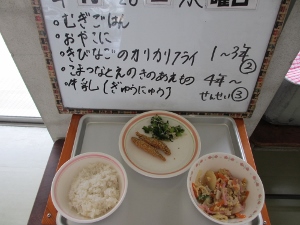 曜日
・むぎごはん
・おやこに
・きびなごのカリカリフライ 1~3年
②
・こまつなとえのきのあえもの 4年~
・牛乳(ぎゅうにゅう) せんせい③